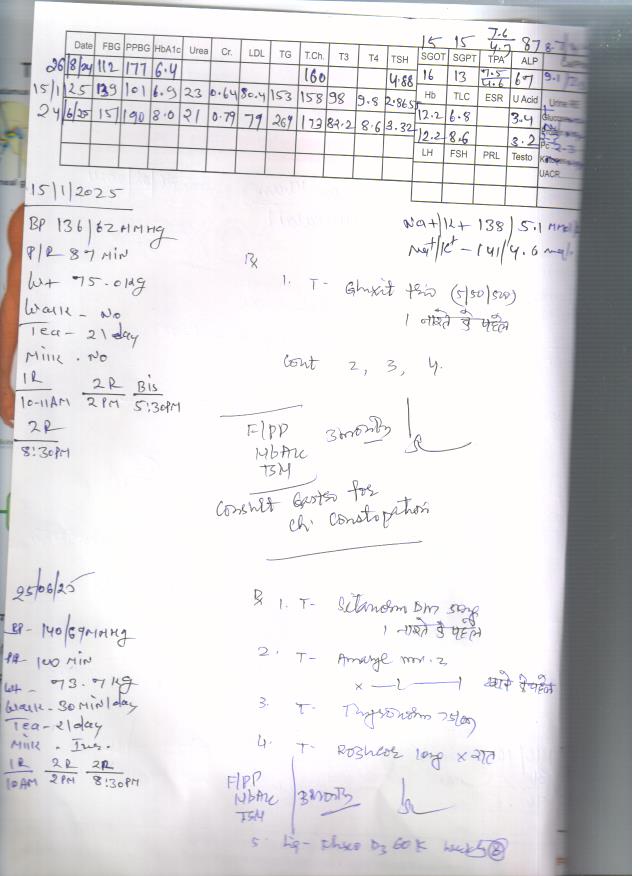 15 15 7.6/4.7 87
Date FBG PPBG HbA1c Urea Cr. LDL TG T.Ch. T3 T4 TSH SGOT SGPT TPA ALP
26/8/24 112 177 6.4 160 4.88 16 13 7.5/4.6 67 9.1
Hb TLC ESR U Acid
15/1/25 139 101 6.9 23 0.64 80.4 153 158 98 9.8 2.865 12.2 6.8 3.4
24/6/25 151 190 8.0 21 0.79 79 269 173 82.2 8.6 3.32 12.2 8.6 3.2
LH FSH PRL Testo
UACR
15/1/2025
BP 136/62 MMHg
P/R 87 MIN
Wt 75.0 Kg
Walk - No
Tea - 2/day
Milk - No
1R 2R Bis
10-11AM 2PM 5:30PM
2R
8:30PM
Na+/K+ 138/5.1
Na+/K+ - 141/4.6
Rx
1. T- (5/50/500)
1 नाश्ते से पहले
Cont 2, 3, 4.
F/PP
HbA1c
TSM
3 months
Consult Gastro for
Ch. Constopation
25/06/25
BP- 140/69 MMHg
PR- 100 MIN
Wt- 73.7 Kg
Walk- 30 MIN/day
Tea- 2/day
Milk -
1R 2R 2R
10AM 2PM 8:30PM
Rx 1. T- Sitanorm DM
1 नाश्ते से पहले
2. T- Amaryl mv. 2
x — 1 — 1 खाने से पहले
3. T- Thyronorm
4. T- 10mg x रात
F/PP
HbA1c
TSM
3 months
5. D3 60K